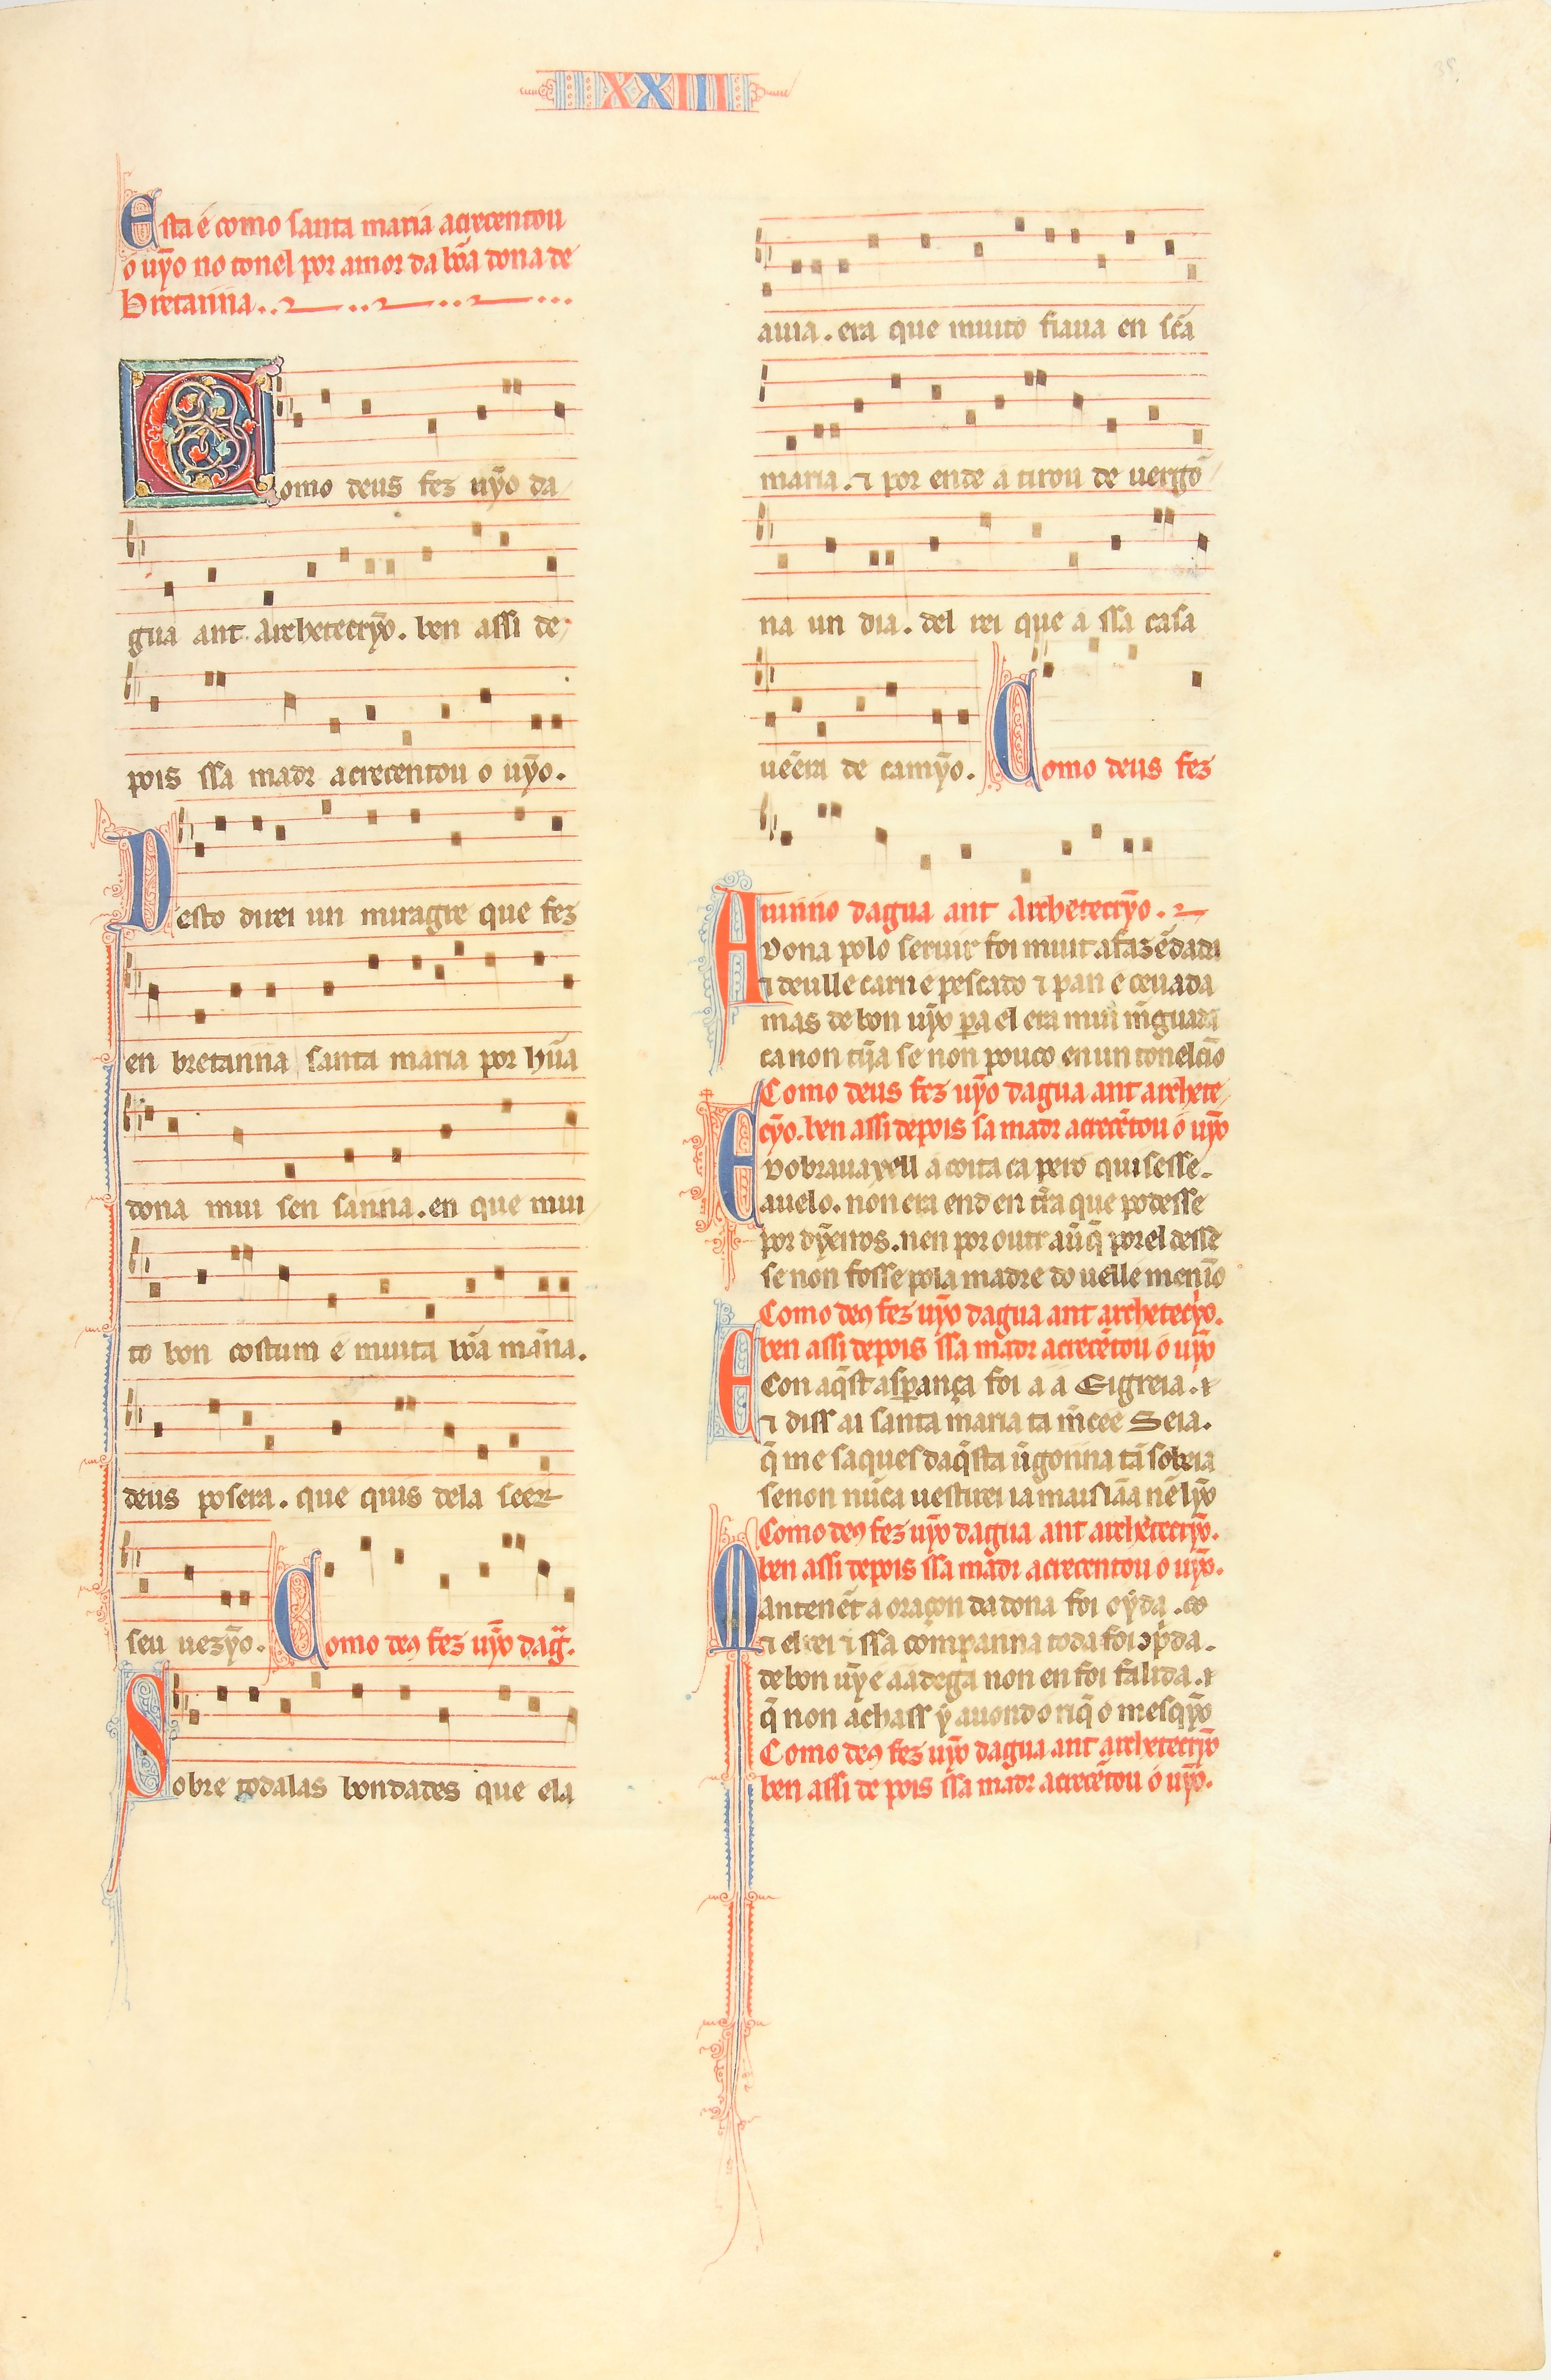 XXIII
35
Esta é como santa maria acrecentou
o uỹo no tonel por amor da bõa dona de
bretanna..
Como deus fez uỹo da
gua ant Archetecryỹo. ben assi de
pois ssa madr acrecentou o uỹo.
Desto direi un miragre que fez
en bretanna santa maria por hũa
dona mui sen sanna. en que mui
to bon costum e muita bõa mãna.
deus posera. que quis dela seer
seu uezỹo. Como deꝯ fez uỹo dag̃.
Sobre todalas bondades que ela
auia. era que muito fiaua en sc̃a
maria. ⁊ por ende a tirou de uergõ
na un dia. del rei que a ssa casa
uẽera de camỹo. Como deus fez
uinno dagua ant Archetecryỹo.
A dona polo seruir foi muit afazẽdada
⁊ deulle carn e pescato ⁊ pan e ceuada
mas de bon uỹo pera el era mui mĩguada
ca non tĩja se non pouco en un tonelcĩo
Como deus fez uỹo dagua ant archete
cỹo. ben assi depois sa madr acrecẽtou o uỹo
E dobrauaxell a coita ca pero quisesse.
auelo. non era end en t̃ra que podesse
por dỹeiros. nen por outr auer q̃ por el desse
se non fosse pola madre do uelle menĩo
Como deꝯ fez uỹo dagua ant archetecỹo.
ben assi depois ssa madr acrecẽtou o uỹo
E Con aq̃st asperança foi a a Eigreia. ⁊
⁊ diss ai santa maria ta m̃cee Seia.
q̃ me saques daq̃sta ũgonna tã sobeia
senon nũca uestirei ia mais lãa nẽ lỹo
Como deꝯ fez uỹo dagua ant archetecryỹo.
ben assi depois ssa madr acrecentou o uỹo.
Mantenẽt a oraçon da dona foi oỹda. ⁊o
⁊ el rei ⁊ ssa companna toda foi ꝯp̃da.
de bon uỹ e a adega non en foi falida. ⁊
q̃ non achass ỹ auondo o riq̃ o mesqỹo
Como deꝯ fez uỹo dagua ant archetecryỹo
ben assi de pois ssa madr acrecẽtou o uỹo.